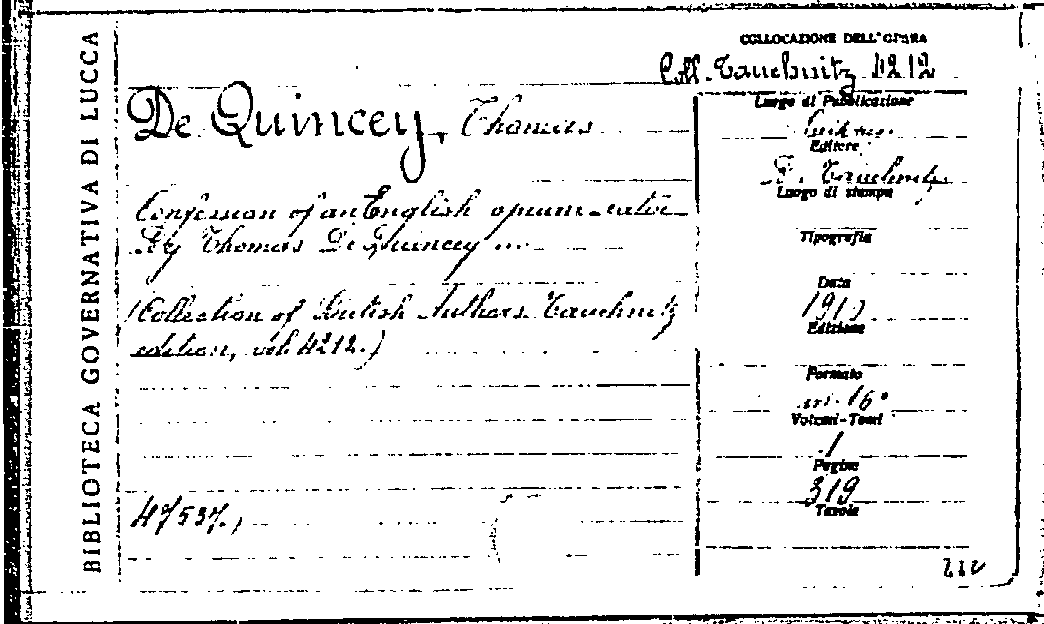 BIBLIOTECA GOVERNATIVA DI LUCCA
COLLOCAZIONE DELL'OPERA
Coll. Tauchnitz 4212
De Quincey, Thomas
Confession of an English opium-eater
By Thomas De Quincey ...
(Collection of British Authors Tauchnitz
edition, vol. 4212.)
47537.
Luogo di Pubblicazione
Editore
B. Tauchnitz
Luogo di stampa
Tipografia
Data
Edizione
Formato
in-16°
Volumi-Tomi
1
Pagine
319
Tavole